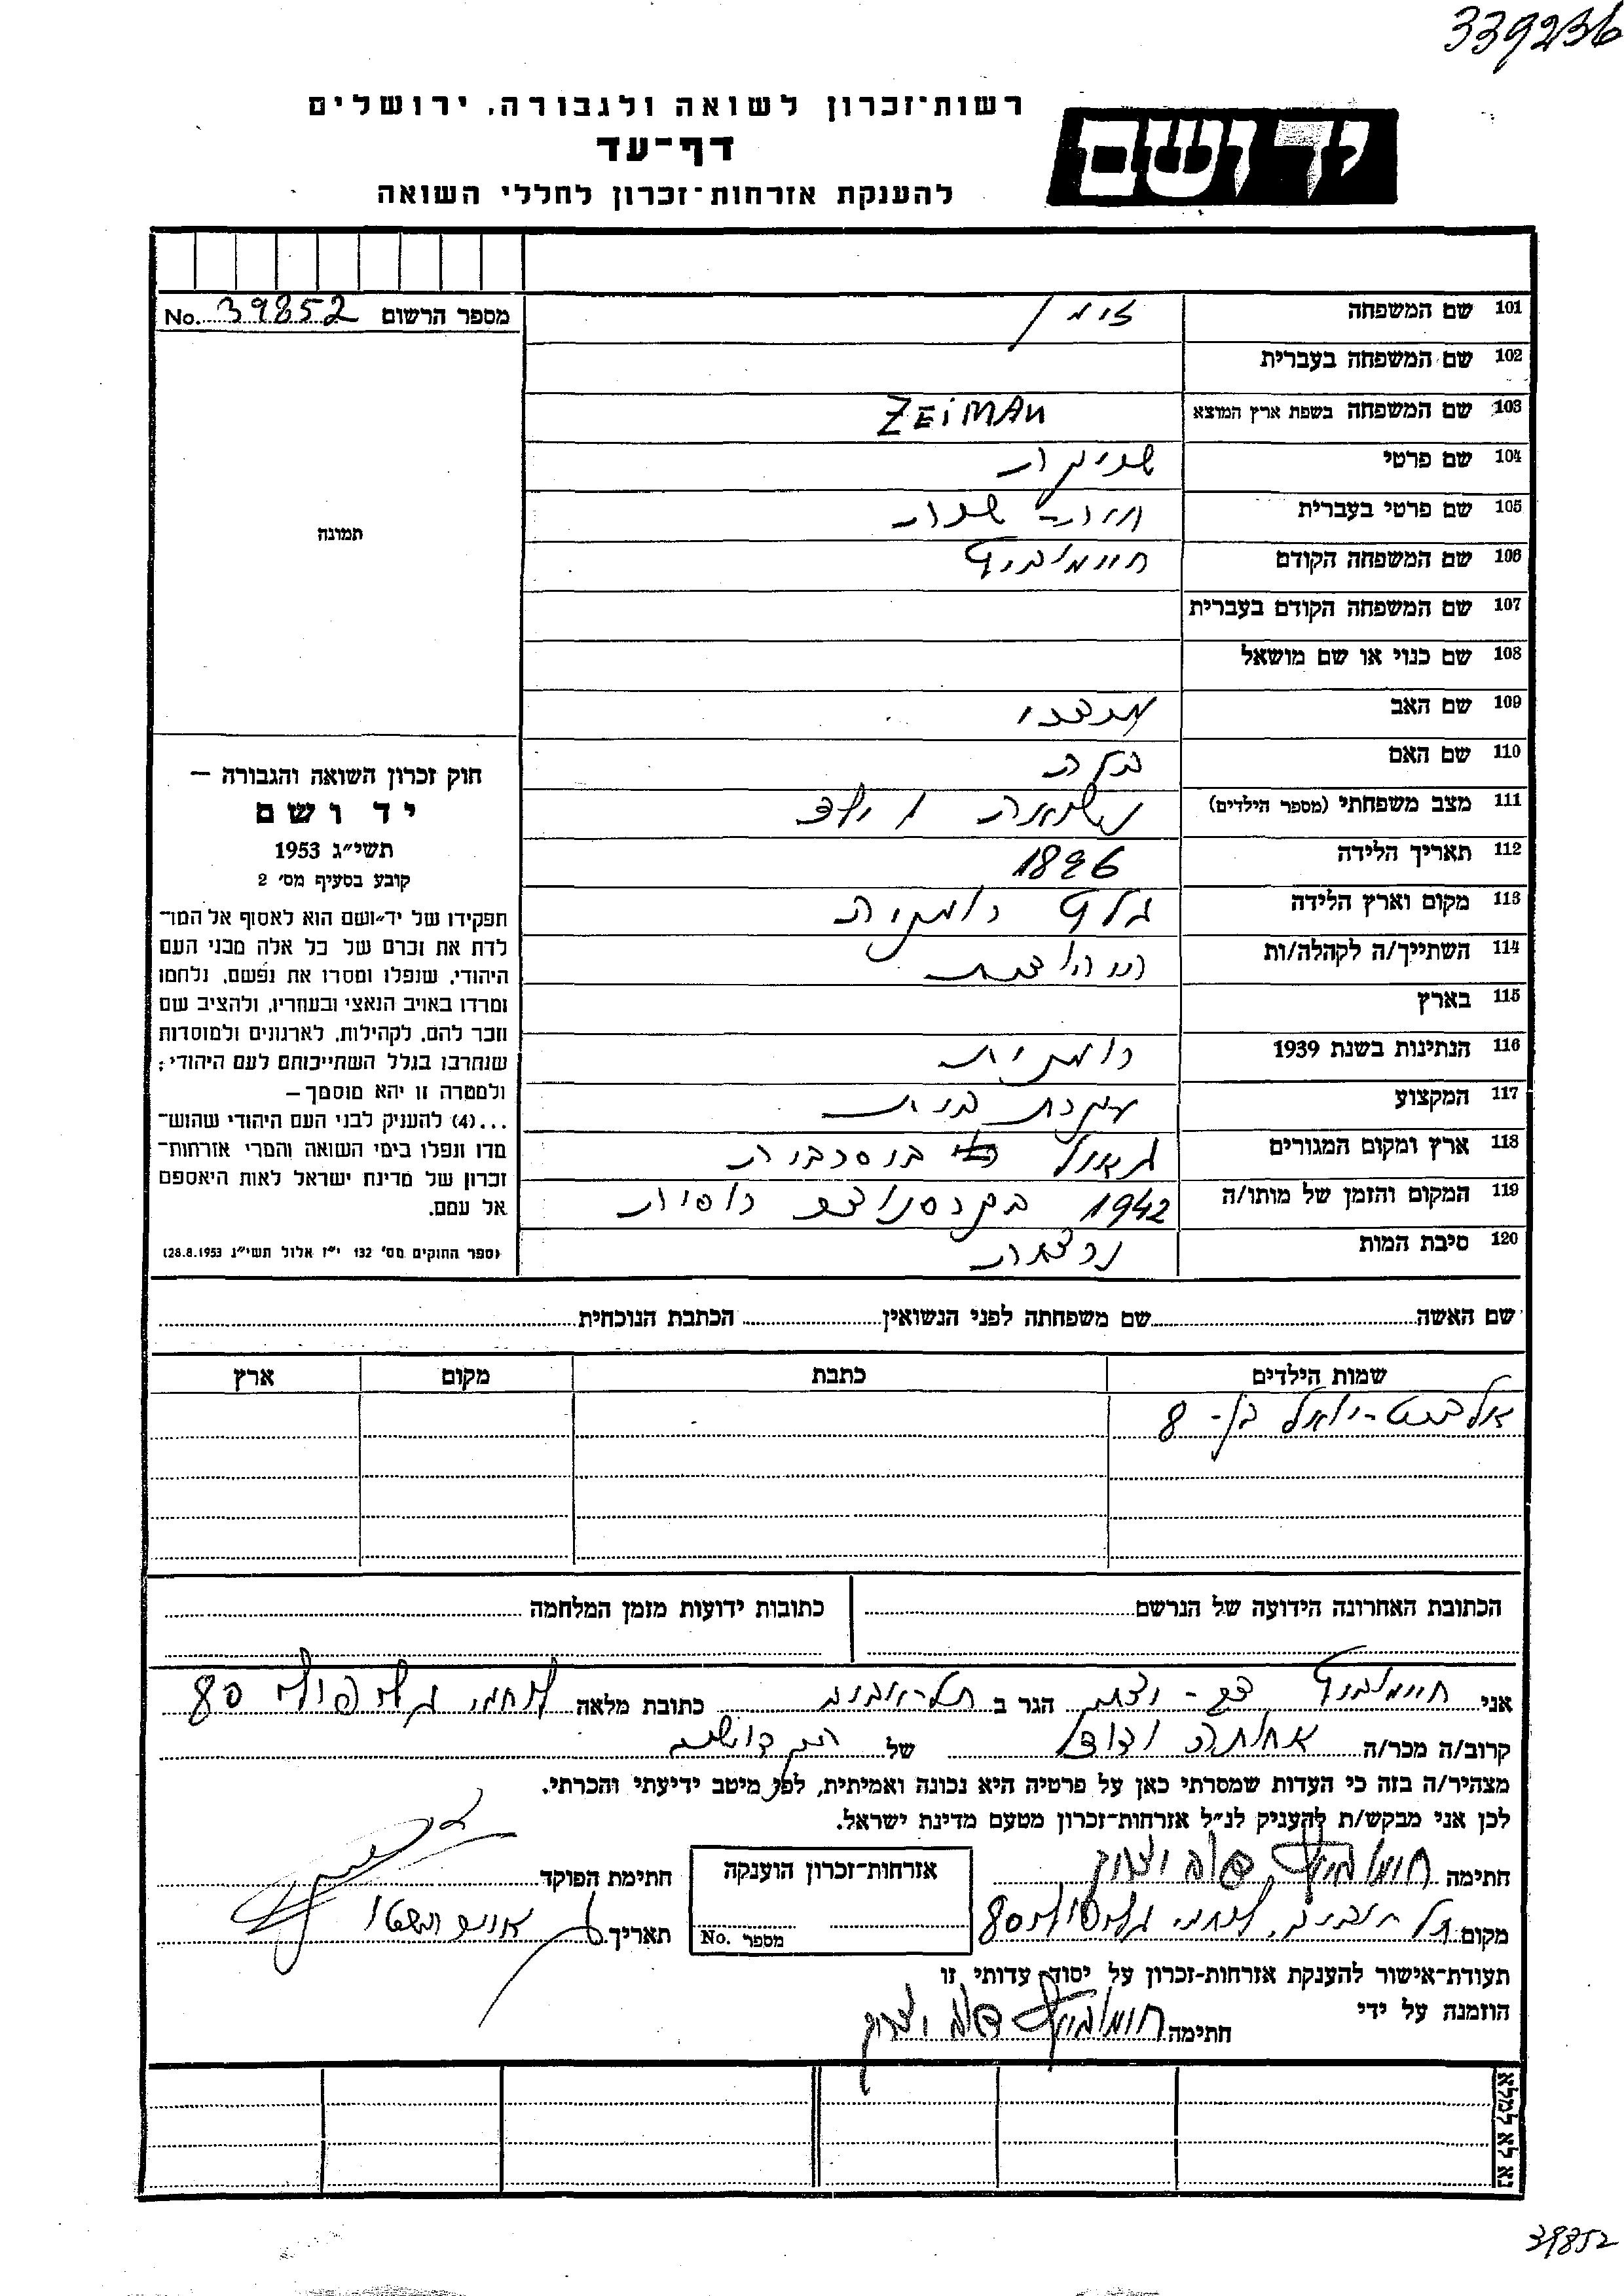 339236
רשות־זכרון לשואה ולגבורה, ירושלים
יד ושם
דף־עד
להענקת אזרחות־זכרון לחללי השואה
מספר הרשום 39852 No.
תמונה
101 שם המשפחה
102 שם המשפחה בעברית
103 שם המשפחה בשפת ארץ המוצא ZEiMAN
104 שם פרטי
105 שם פרטי בעברית
106 שם המשפחה הקודם חיימוביץ
107 שם המשפחה הקודם בעברית
108 שם כנוי או שם מושאל
109 שם האב מרדכי
110 שם האם
111 מצב משפחתי (מספר הילדים) נשואה 1 ילד
112 תאריך הלידה 1896
113 מקום וארץ הלידה רומניה
114 השתייך/ה לקהלה/ות
115 בארץ
116 הנתינות בשנת 1939 רומנית
117 המקצוע עקרת בית
118 ארץ ומקום המגורים בסרביה
119 המקום והזמן של מותו/ה 1942 רוסיה
120 סיבת המות נרצחה
חוק זכרון השואה והגבורה —
יד ושם
תשי״ג 1953
קובע בסעיף מס׳ 2
תפקידו של יד־ושם הוא לאסוף אל המו־
לדת את זכרם של כל אלה מבני העם
היהודי, שנפלו ומסרו את נפשם, נלחמו
ומרדו באויב הנאצי ובעוזריו, ולהציב שם
וזכר להם, לקהילות, לארגונים ולמוסדות
שנחרבו בגלל השתייכותם לעם היהודי;
ולמטרה זו יהא מוסמך —
...(4) להעניק לבני העם היהודי שהוש־
מדו ונפלו בימי השואה והמרי אזרחות־
זכרון של מדינת ישראל לאות היאספם
אל עמם.
(ספר החוקים מס׳ 132 י״ז אלול תשי״ג 28.8.1953)
שם האשה שם משפחתה לפני הנשואין הכתבת הנוכחית
שמות הילדים כתבת מקום ארץ
אלברט-יואל בן- 8
הכתובת האחרונה הידועה של הנרשם כתובות ידועות מזמן המלחמה
אני חיימוביץ הגר ב תל-אביב כתובת מלאה לוחמי גליפולי 80
קרוב/ה מכר/ה של
מצהיר/ה בזה כי העדות שמסרתי כאן על פרטיה היא נכונה ואמיתית, לפי מיטב ידיעתי והכרתי.
לכן אני מבקש/ת להעניק לנ״ל אזרחות־זכרון מטעם מדינת ישראל.
חתימה חיימוביץ
אזרחות־זכרון הוענקה
מספר No.
חתימת הפוקד
מקום תל אביב, לוחמי גליפולי 80
תאריך
תעודת־אישור להענקת אזרחות־זכרון על יסוד עדותי זו
הוזמנה על ידי
חתימה חיימוביץ
נא לא למלא
39852